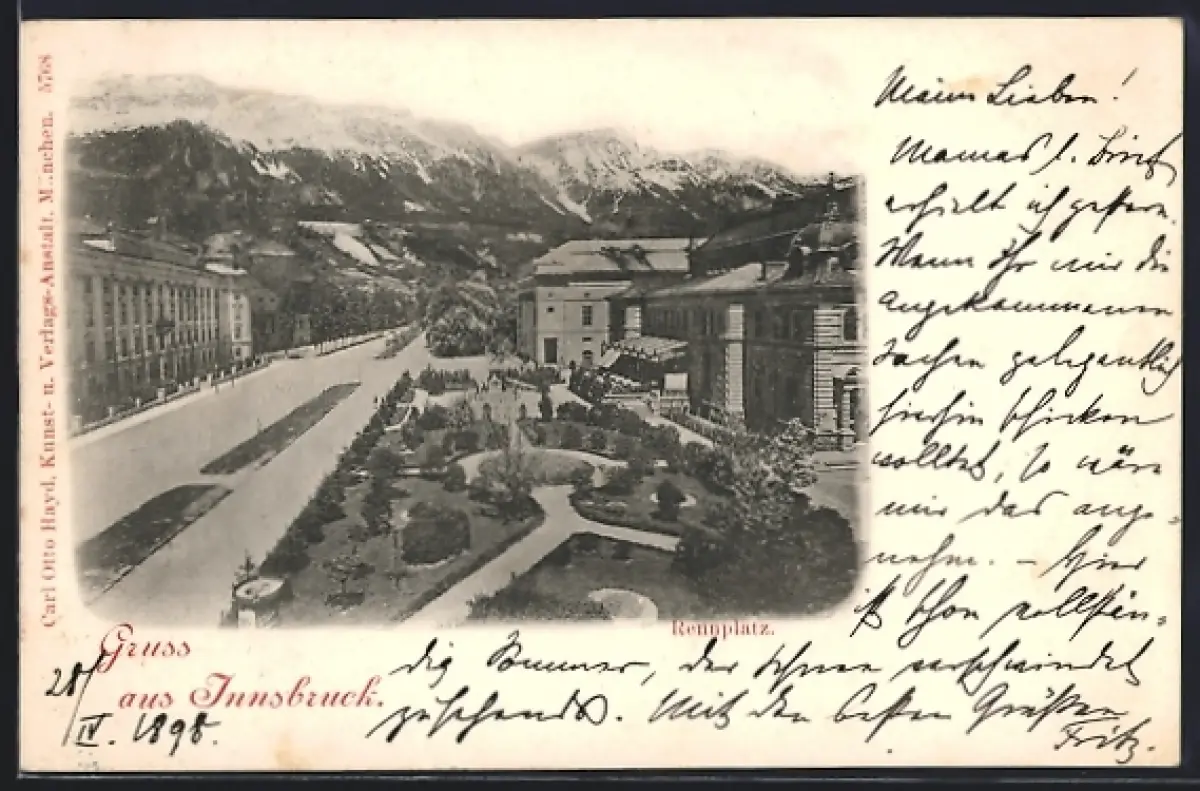 Carl Otto Hayd, Kunst- u. Verlags-Anstalt, München. 5768
Meine Lieben!
Mamas l. Brief
erhielt ich gestern.
Wenn Ihr mir die
angekommenen
Sachen gelegentlich
hierhin schicken
wolltet, so wäre
mir das ange-
nehm. – Hier
ist schon vollstän-
dig Sommer, der Schnee verschwindet
zusehends. Mit den besten Grüßen
Fritz.
Rennplatz.
Gruss
aus Innsbruck.
28/
IV. 1898.